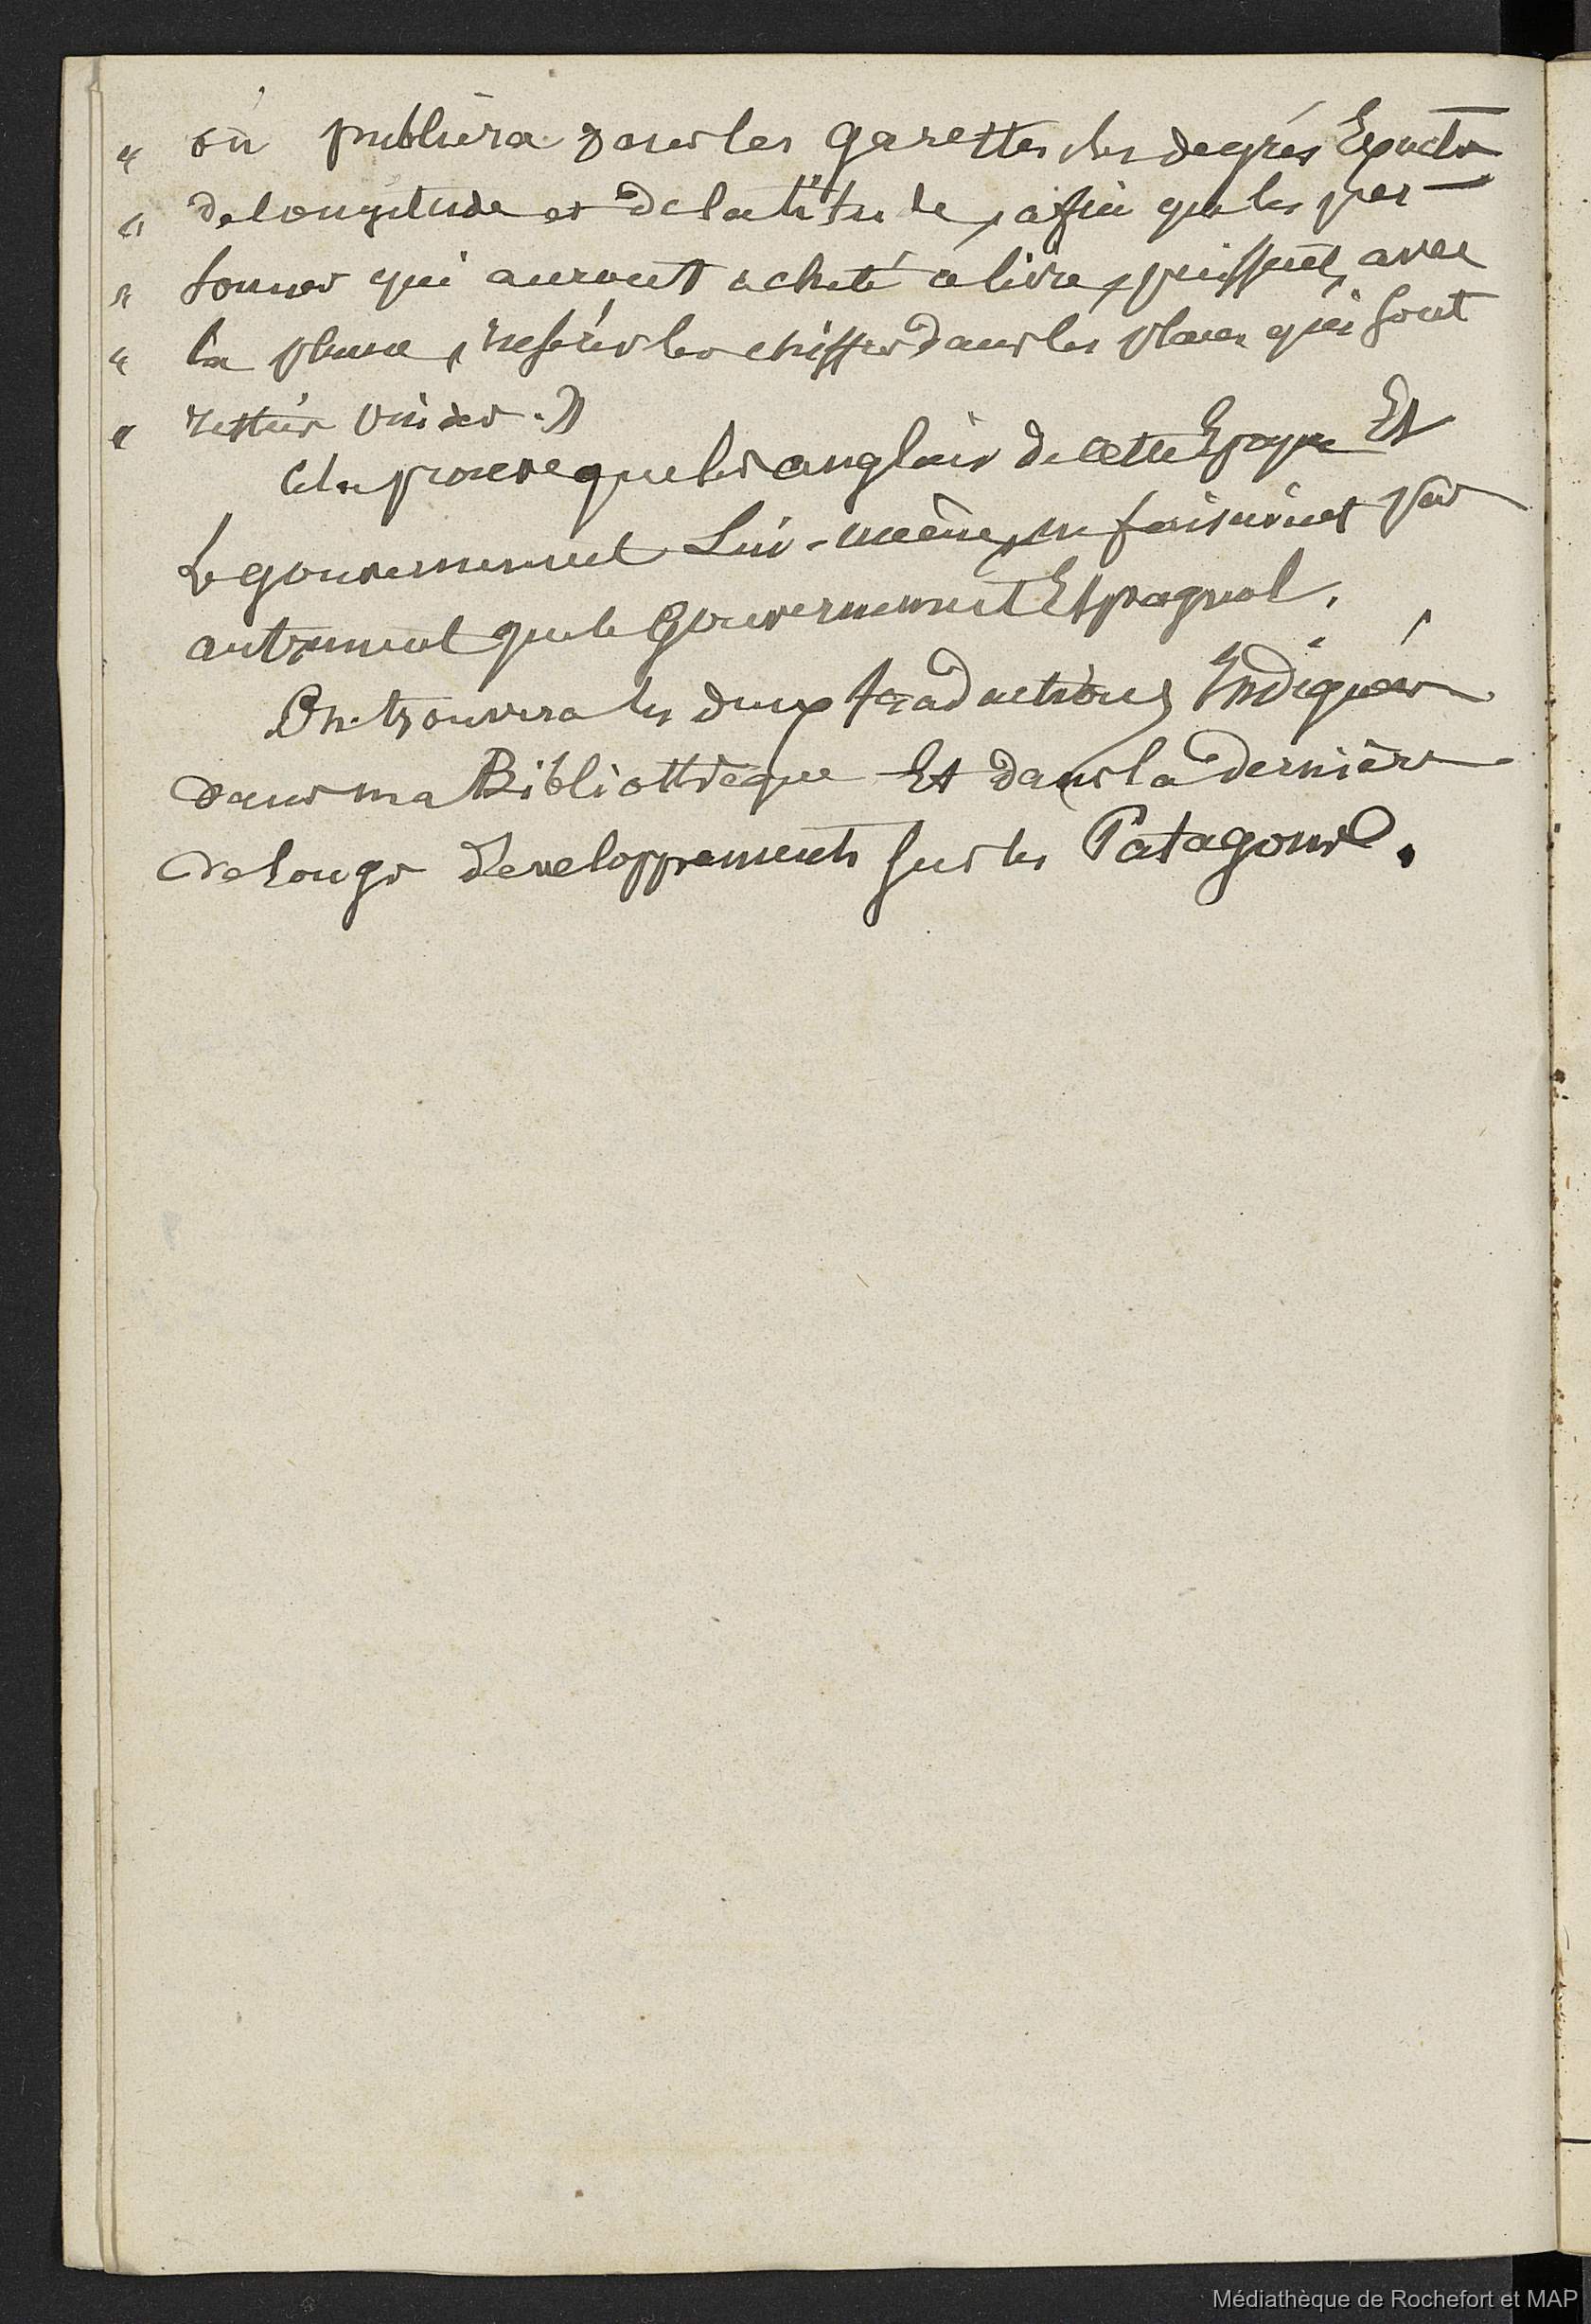 " on publiera dans les gazettes les degrés Exacts
" de longitude et de latitude, afin que les per-
" sonnes qui auront acheté ce livre, puissent, avec
" la plume, insérer les chiffres dans les places qui sont
" restées vuides. »
Cela prouve que les anglais de cette Epoque Et
le gouvernement Lui-même, ne faisaient pas
autrement que le Gouvernement Espagnol.
On trouvera les deux traductions Indiquées
dans ma Bibliothèque Et dans la dernière
de Longs développements sur les Patagons.
Médiathèque de Rochefort et MAP